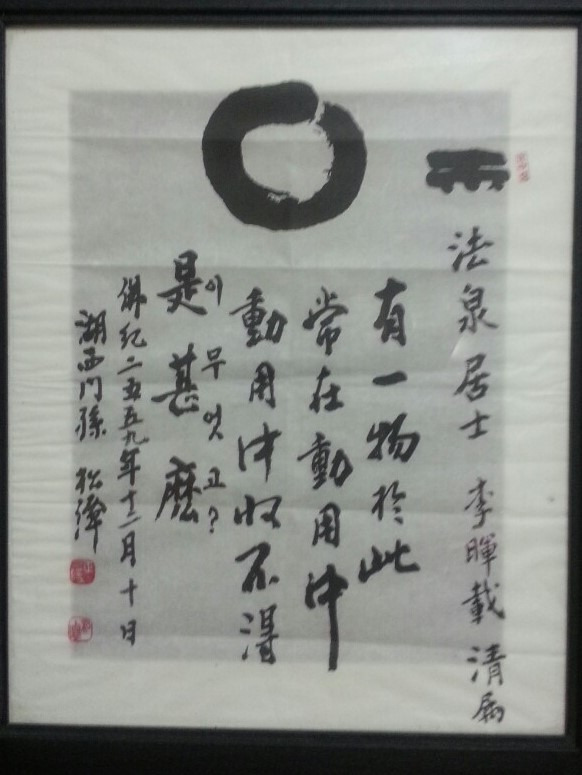 法泉居士 李暉載 清
有一物於此
常在動用中
動用中收不得
이 무엇고?
是甚麽
佛紀二五五九年十二月十日
湖西門孫 松